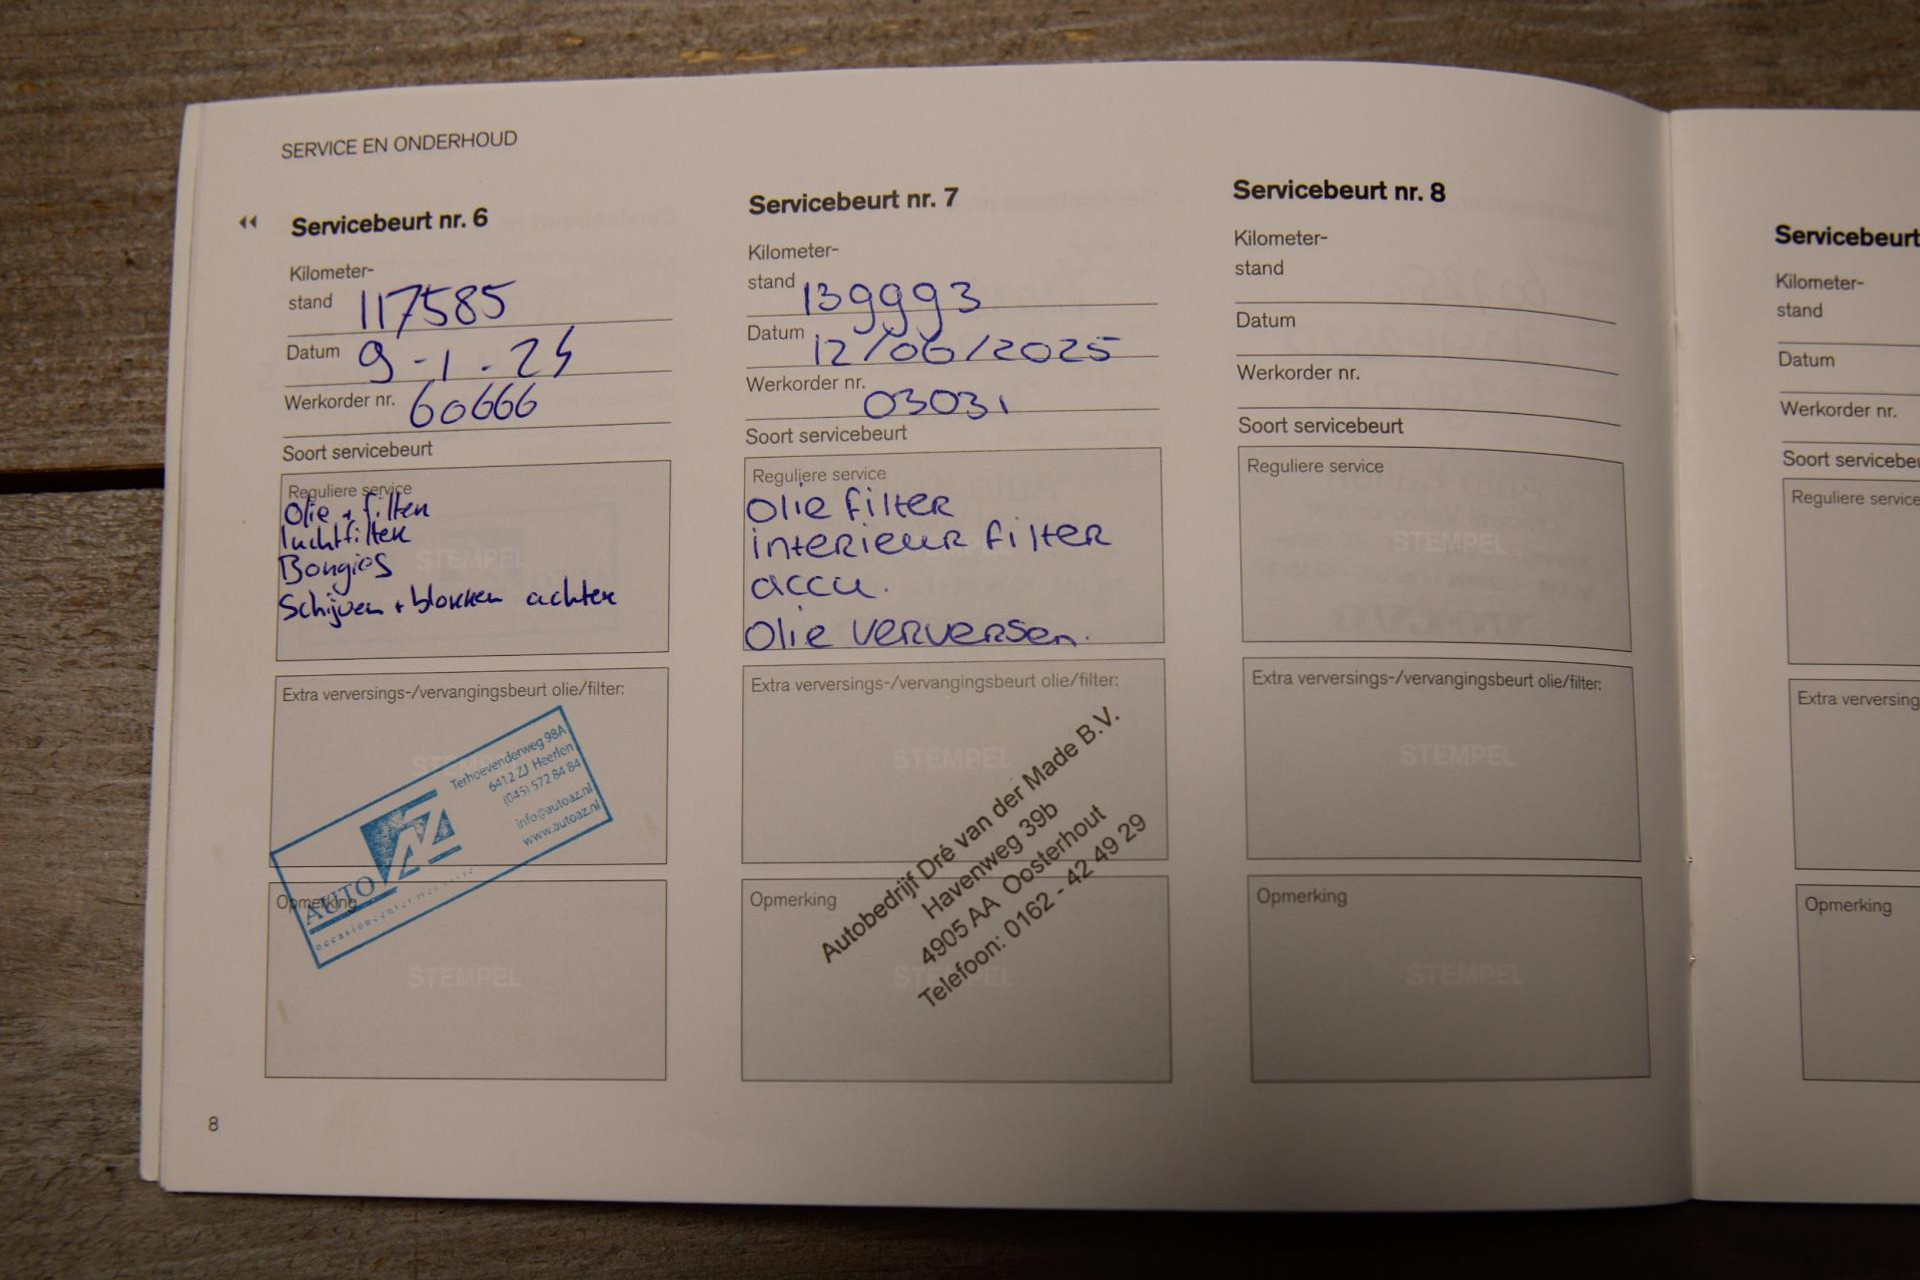 SERVICE EN ONDERHOUD
Servicebeurt nr. 6
Kilometer-
stand 117585
Datum 9-1-24
Werkorder nr. 60666
Soort servicebeurt
Reguliere service
Olie + filter
luchtfilter
Bougies
Schijven + blokken achter
STEMPEL
Extra verversings-/vervangingsbeurt olie/filter:
STEMPEL
Terhoevenderweg 98A
6412 ZJ Heerlen
(045) 572 84 84
info@autoaz.nl
www.autoaz.nl
AUTO AZ
Opmerking
STEMPEL
8
Servicebeurt nr. 7
Kilometer-
stand 139993
Datum 12/06/2025
Werkorder nr. 03031
Soort servicebeurt
Reguliere service
Olie filter
interieur filter
accu.
Olie verversen.
Extra verversings-/vervangingsbeurt olie/filter:
STEMPEL
Autobedrijf Dré van der Made B.V.
Havenweg 39b
4905 AA Oosterhout
Telefoon: 0162 - 42 49 29
Opmerking
STEMPEL
Servicebeurt nr. 8
Kilometer-
stand
Datum
Werkorder nr.
Soort servicebeurt
Reguliere service
STEMPEL
Extra verversings-/vervangingsbeurt olie/filter:
STEMPEL
Opmerking
STEMPEL
Servicebeurt
Kilometer-
stand
Datum
Werkorder nr.
Soort servicebeu
Reguliere service
Extra verversing
Opmerking